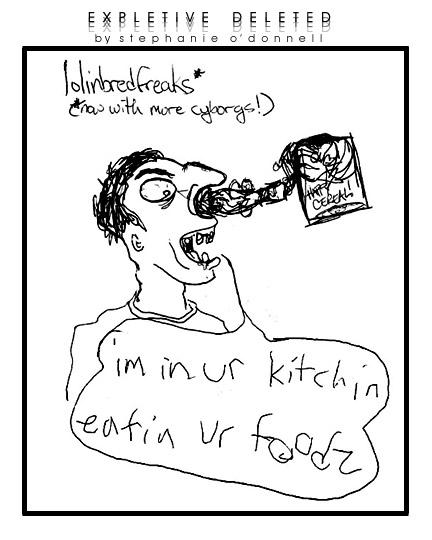 EXPLETIVE DELETED
by stephanie o'donnell
lolinbredfreaks*
(*now with more cyborgs!)
CEREAL
'im in ur kitchin
eatin ur foodz